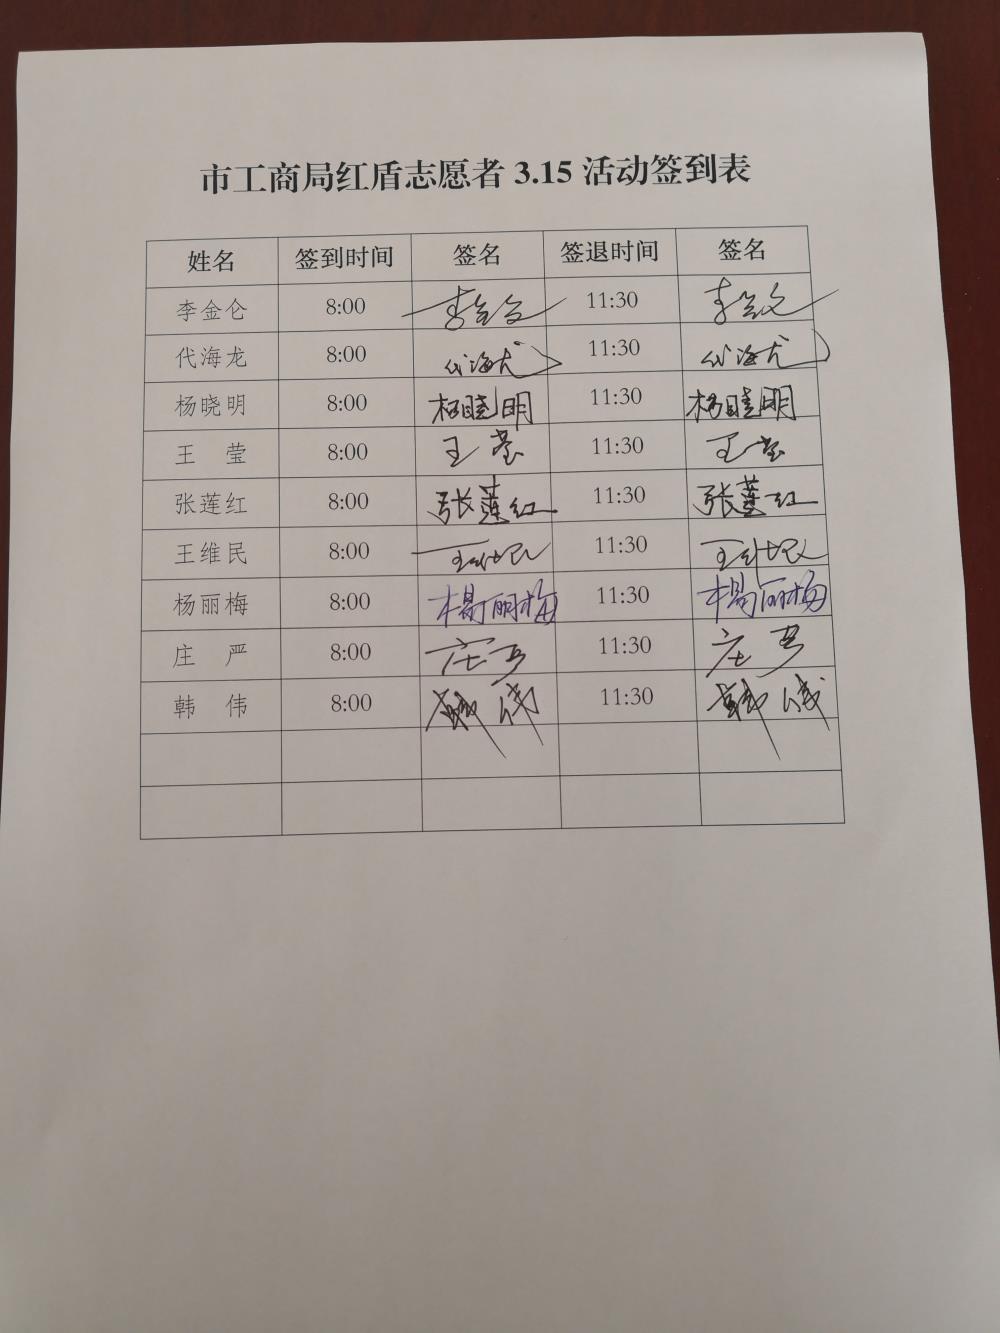 市工商局红盾志愿者 3.15 活动签到表
姓名 签到时间 签名 签退时间 签名
李金仑 8:00 李金仑 11:30 李金仑
代海龙 8:00 代海龙 11:30 代海龙
杨晓明 8:00 杨晓明 11:30 杨晓明
王 莹 8:00 王莹 11:30 王莹
张莲红 8:00 张莲红 11:30 张莲红
王维民 8:00 王维民 11:30 王维民
杨丽梅 8:00 楊丽梅 11:30 楊丽梅
庄 严 8:00 庄严 11:30 庄严
韩 伟 8:00 韩伟 11:30 韩伟